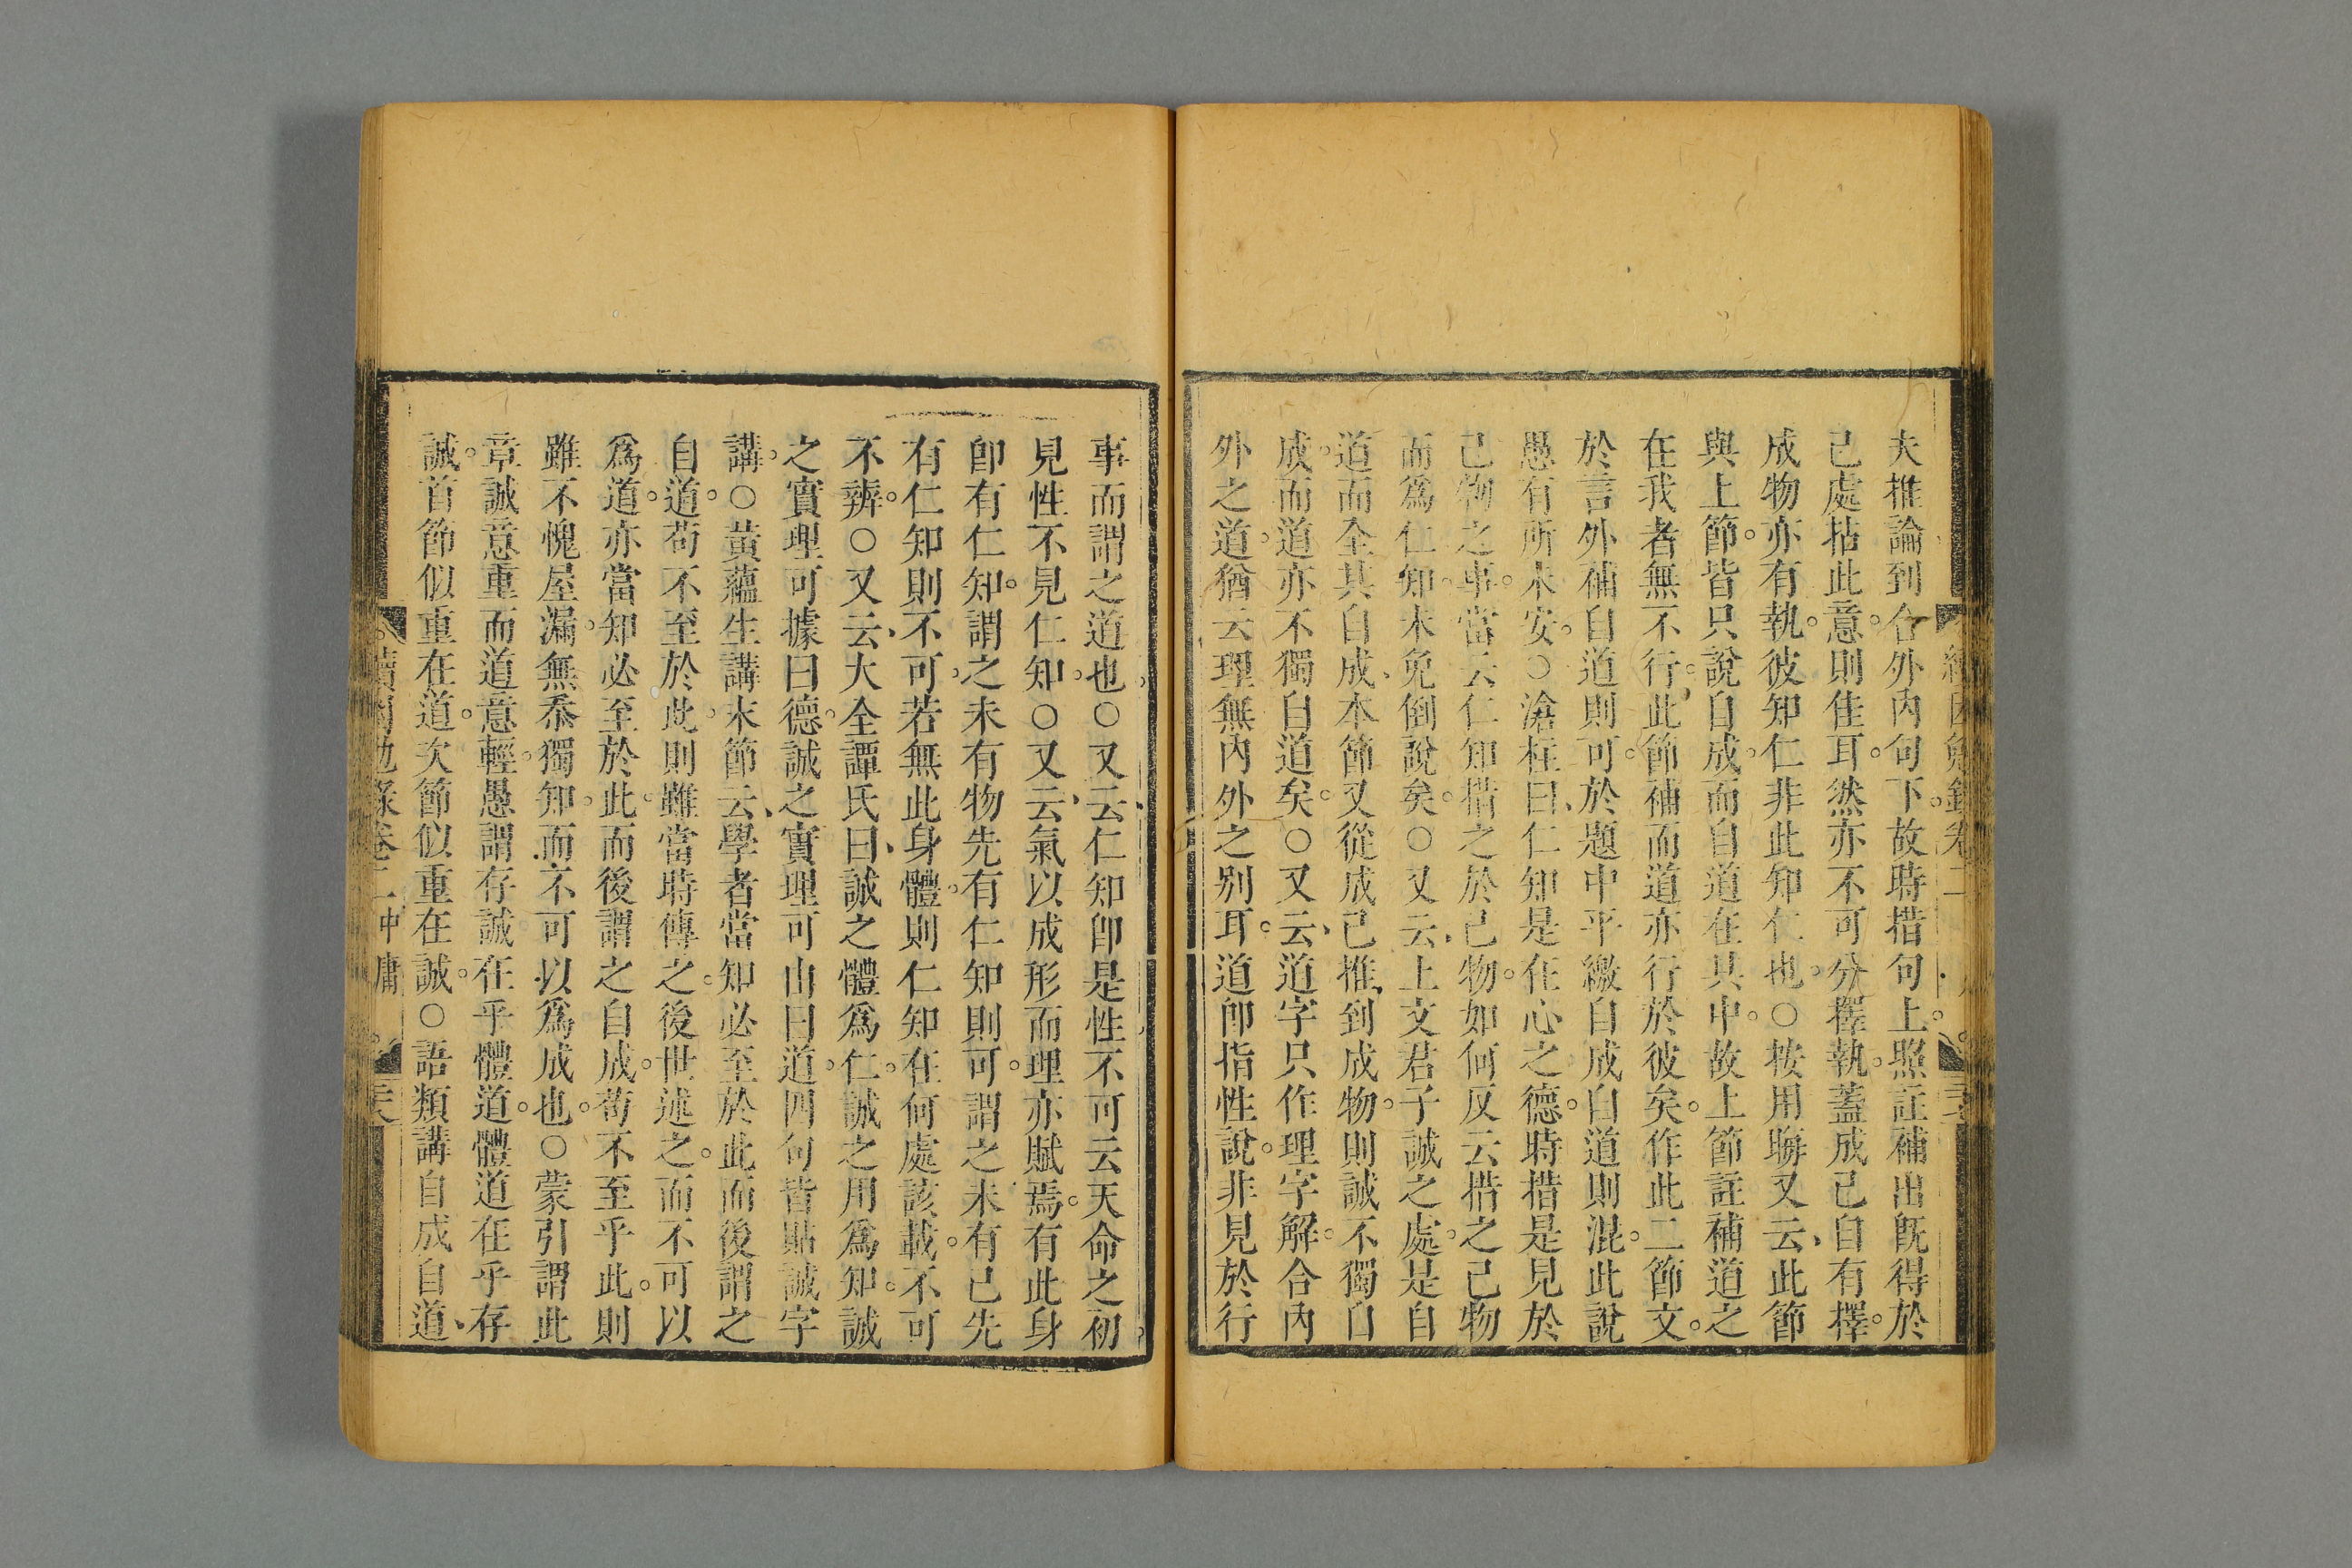 夫推論到合外內句下。故時措句上。照註補出旣得於
己處拈此意。則佳耳。然亦不可分擇執。蓋成己自有擇。
成物亦有執。彼知仁非此知仁也。○按用聯又云、此節
與上節。皆只說自成。而自道在其中。故上節註補道之
在我者無不行。此節補而道亦行於彼矣。作此二節文。
於言外補自道則可。於題中平繳自成自道則混。此說
愚有所未安。○滄柱曰、仁知是在心之德。時措是見於
己物之事。當云仁知措之於己物。如何反云措之己物
而爲仁知。未免倒說矣。○又云、上文君子誠之處。是自
道而全其自成、本節又從成己推到成物。則誠不獨自
成。而道亦不獨自道矣。○又云、道字只作理字解。合內
外之道。猶云理無內外之別耳。道卽指性說。非見於行
事而謂之道也。○又云、仁知卽是性、不可云天命之初、
見性不見仁知。○又云、氣以成形而理亦賦焉。有此身
卽有仁知。謂之未有物先有仁知則可。謂之未有己先
有仁知則不可、若無此身體。則仁知在何處該載。不可
不辨。○又云、大全譚氏曰、誠之體爲仁。誠之用爲知。誠
之實理可據曰德。誠之實理可由曰道。四句皆貼誠字
講。○黃蘊生講末節云、學者當知必至於此而後謂之
自道。苟不至於此。則雖當時傳之。後世述之。而不可以
爲道。亦當知必至於此。而後謂之自成。苟不至乎此。則
雖不愧屋漏。無忝獨知。而不可以爲成也。○蒙引謂此
章誠意重而道意輕。愚謂存誠。在乎體道。體道在乎存
誠。首節似重在道。次節似重在誠。○語類講自成自道、
續困勉錄卷二 中庸